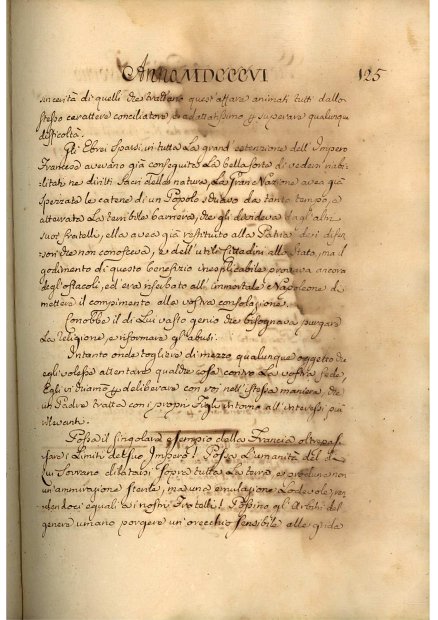 Anno MDCCCVI 125
sincerità di quelli che trattano quest'affare animati tutti dallo
stesso carattere conciliatore, ed adattatissimo p superare qualunque
difficoltà.
Gli Ebrei sparsi in tutta la grand'estenzione dell'Impero
Francese avevano già conseguito la bella sorte di vedersi riabi-
litati ne diritti sacri della natura, La Gran Nazione avea già
spezzate le catene di un Popolo schiavo da tanto tempo, e
atterrata la terribile barriera, che gli divideva dagl'altri
suoi fratelli, ella avea già restituito alla Patria i difen-
sori che non conosceva, e dell'utili Cittadini allo Stato, ma il
godimento di questo benefizio inesplicabile provava ancora
degl'ostacoli, ed era riserbato all'immortale Napoleone di
mettere il compimento alla vostra consolazione.
Conobbe il di Lui vasto genio che bisognava purgare
la religione, e riformare gl'abusi.
Intanto onde togliere di mezzo qualunque oggetto che
egli volesse attentare qualche cosa contro la vostra fede,
Egli vi chiamò p deliberare con voi nell'istessa maniera, che
un Padre tratta con i propri Figli intorno all'interessi più
rilevanti.
Possa il singolare esempio della Francia oltrepas-
sare i Limiti del suo Impero! Possa l'umanità del di
Lui Sovrano dilatarsi sopra tutta la terra, e produrre non
un'ammirazione sterile, ma una emulazione Lodevole, ren-
dendoci eguali ai nostri Fratelli! Possino gl'Arbitri del
genere umano porgere un'orecchio sensibile alle grida